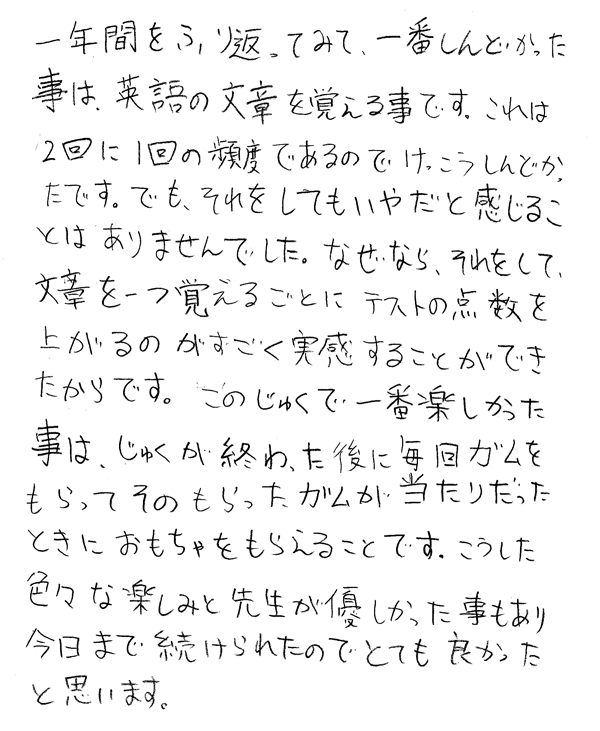 一年間をふり返ってみて、一番しんどかった
事は、英語の文章を覚える事です。これは
2回に1回の頻度であるのでけっこうしんどかっ
たです。でも、それをしてもいやだと感じるこ
とはありませんでした。なぜなら、それをして、
文章を一つ覚えるごとにテストの点数を
上がるのがすごく実感することができ
たからです。このじゅくで一番楽しかった
事は、じゅくが終わった後に毎回ガムを
もらってそのもらったガムが当たりだった
ときにおもちゃをもらえることです。こうした
色々な楽しみと先生が優しかった事もあり
今日まで続けられたのでとても良かった
と思います。